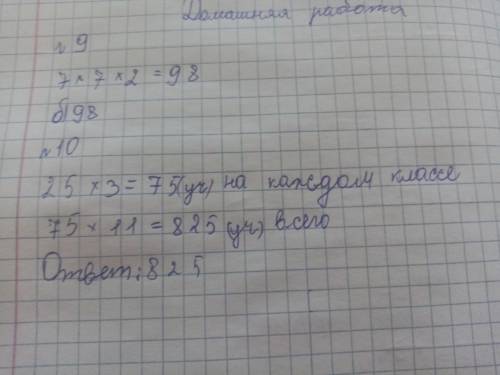 Домашняя работа
№9
7 × 7 × 2 = 98
б) 98
№10
25 × 3 = 75(уч) на каждом классе
75 × 11 = 825 (уч) всего
Ответ: 825